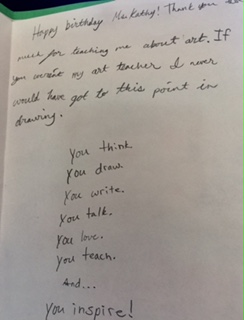 Happy birthday Ms. Kathy! Thank you so
much for teaching me about art. If
you weren't my art teacher I never
would have got to this point in
drawing.
You think
You draw.
You write.
You talk.
You love.
You teach.
And...
You inspire!